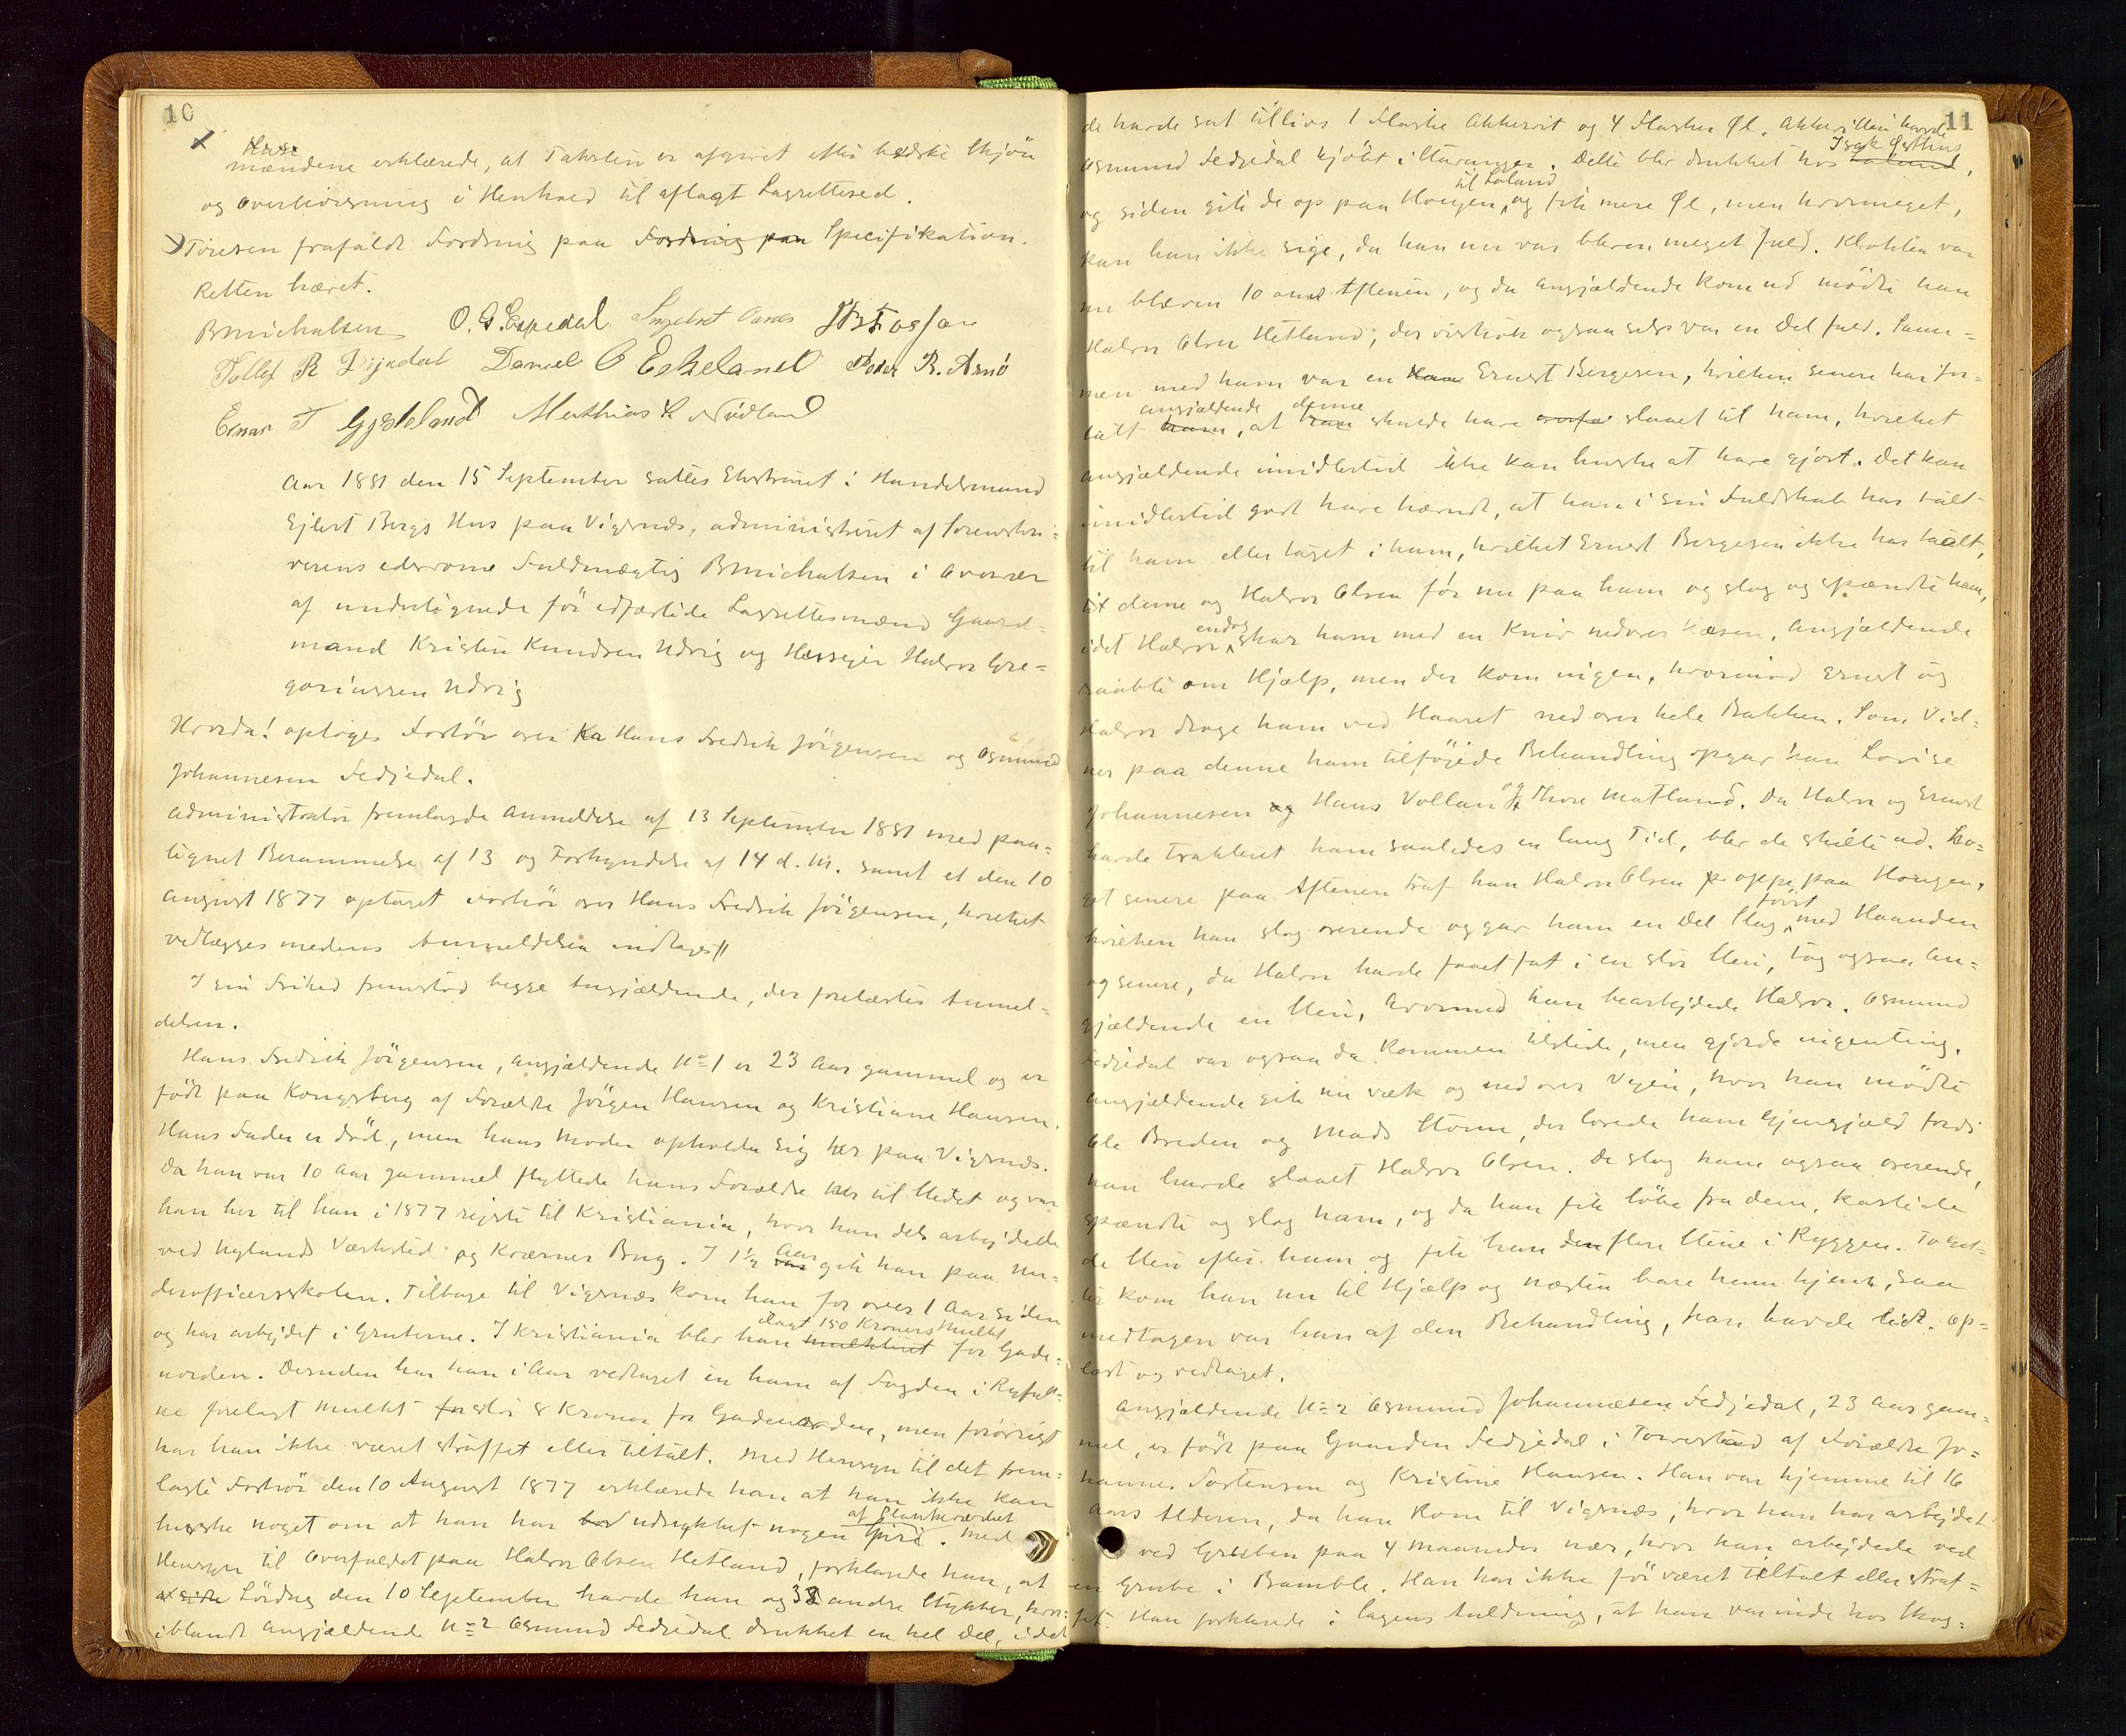 10
mændene erklærede, at Taksten er afgivet efter bedste Skjön
og Overbevisning i Henhold til aflagt Lagrettesed.
Töiesen frafaldt Fordring paa Fordring paa Specifikation.
Retten hævet.
BMichalsen O. G. Espedal Ingebret
Tollef R Daniel O Eskeland Peder R. Arnö
Einar T Gjesteland Mathias L Nødland
Aar 1881 den 15 September sattes Extraret i Handelsmand
Ejlert Bergs Hus paa Vigsnæs, administreret af Sorenskri-
verens edsvorne Fuldmægtig BMichalsen i Overvær
af undertegnede för edfæstede Lagrettesmænd Gaard-
mand Kristen Knudsen Udvig og Halvor Gre-
goriussen Udvig
Hvorda! optoges Forhör over Ka Hans Fredrik Jörgensen og Osmund
Johannesen Fedjedal.
Administrator fremlagde Anmeldelse af 13 September 1881 med paa-
tegnet Berammelse af 13 og Forkyndelse af 14 d. M. samt et den 10
August 1877 optaget Forhör over Hans Fredrik Jörgensen, hvilket
vedlægges medens Anmeldelsen indtages //
I sin Frihed fremstod begge Angjældende, der forelæstes Anmel-
delsen.
Hans Fredrik Jörgensen, Angjældende No 1 er 23 Aar gammel og er
födt paa Kongsberg af Forældre Jörgen Hansen og Kristiane Hansen.
Hans Fader er död, men hans Moder opholder sig her paa Vigsnæs.
Da han var 10 Aar gammel flyttede hans Forældre her til Stedet og var
han her til han i 1877 rejste til Kristiania, hvor han dels arbejdede
ved Nylands Værksted og Kværner Brug. I 1½ Aar gik han paa Un-
derofficersskolen. Tilbage til Vigsnæs kom han for over 1 Aar siden
ilagt 150 Kroners Mulkt
og har arbejdet i Gruberne. I Kristiania blev han mulkteret for Gade-
uorden. Desuden har han i Aar vedtaget en ham af Fogden i Ryfyl-
ke forelagt Mulkt stor 8 Kroner for Gadeuorden, men forövrigt
har han ikke været straffet eller tiltalt. Med Hensyn til det frem-
lagte Forhör den 10 August 1877 erklærede han at han ikke kan
af Plankeværket
huske noget om at han har udrykket nogen Spire. Med
Hensyn til Overfaldet paa Halvor Olsen Hetland, forklarede han, at
Lördag den 10 September havde han og 3 andre Stykker, hvor-
iblandt Angjældende No 2 Osmund Fedjedal drukket en hel Del, idet
11
de havde sat tillivs 1 Flaske Akkevit og 4 Flasker Øl. Akkevitten havde
Isak Østhus
Osmund Fedjedal kjöbt i Stavanger. Dette blev drukket hos Laland,
til Laland
og siden gik de op paa Haugen, og fik mere Øl, men hvormeget,
kan han ikke sige, da han nu var bleven meget fuld. Klokken var
nu bleven 10 om Aftenen, og da Angjældende kom ud mödte han
Halvor Olsen Hetland, der vistnok ogsaa selv var en Del fuld. Sam-
men med ham var en Ernest Bergesen, hvilken senere har for-
angjældende denne
talt ham, at han skulde have slaaet til ham, hvilket
Angjældende imidlertid ikke kan huske at have gjort. Det kan
imidlertid godt have hændt, at han i sin Fuldskab har talt
til ham eller taget i ham, hvilket Ernest Bergesen ikke har taalt,
denne og Halvor Olsen för nu paa ham og slog og spændte ham,
endog
idet Halvor skar ham med en Kniv nedover Næsen. Angjældende
raabte om Hjælp, men der kom ingen, hvorimod Ernest og
Halvor droge ham ved Haaret ned over hele Bakken. Som Vid-
ner paa denne ham tilföjede Behandling opgav han Lovise
Johannesen og Hans Vollan og Thore Matland. Da Halvor og Ernest
havde trakteret ham saaledes en lang Tid, blev de skilte ad. No-
get senere paa Aftenen traf han Halvor Olsen oppe paa Haugen,
först
hvilken han slog overende og gav ham en Del Slag med Haanden
og senere, da Halvor havde faaet fat i en stor Sten, tog ogsaa An-
gjældende en Sten, hvormed han bearbejdede Halvor. Osmund
Fedjedal var ogsaa da kommen tilstede, men gjorde ingenting.
Angjældende gik nu væk og ned over Vejen, hvor han mödte
Ole Breden og Mads Stöme, der lovede ham Gjengjæld fordi
han havde slaaet Halvor Olsen. De slog ham ogsaa overende,
spændte og slog ham, og da han fik löbe fra dem, kastede
de Sten efter ham og fik han flere Stene i Ryggen. To
kom han nu til Hjælp og næsten bare ham hjem, saa
medtagen var han af den Behandling, han havde lidt. Op-
læst og vedtaget.
Angjældende No 2 Osmund Johannesen Fedjedal, 23 Aar gam-
mel, er födt paa Gaarden Fedjedal i Torvestad af Forældre Jo-
hannes Torstensen og Kristine Hansen. Han var hjemme til 16
Aars Alderen, da han kom til Vigsnæs, hvor han har arbejdet
ved Gruben paa 4 Maaneder nær, hvor han arbejdede ved
en Grube i Bamble. Han har ikke för været tiltalt eller straf-
fet. Han forklarede i Sagens Anledning, at han var inde hos Skog-